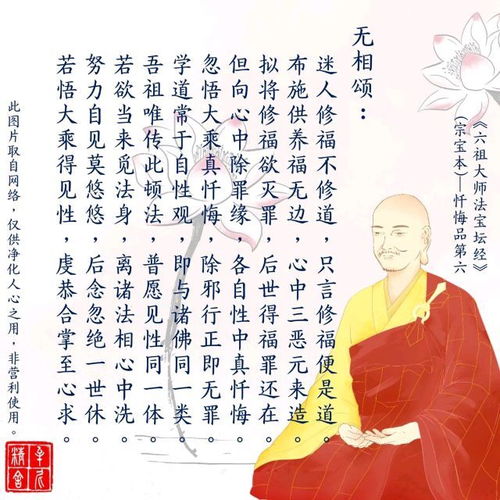 《六祖大师法宝坛经》
(宗宝本)—忏悔品第六
无相颂：
迷人修福不修道，只言修福便是道。
布施供养福无边，心中三恶元来造。
拟将修福欲灭罪，后世得福罪还在。
但向心中除罪缘，各自性中真忏悔。
忽悟大乘真忏悔，除邪行正即无罪。
学道常于自性观，即与诸佛同一类。
吾祖唯传此顿法，普愿见性同一体。
若欲当来觅法身，离诸法相心中洗。
努力自见莫悠悠，后念忽绝一世休。
若悟大乘得见性，虔恭合掌至心求。
此图片取自网络，仅供净化人心之用，非营利使用。
精舍